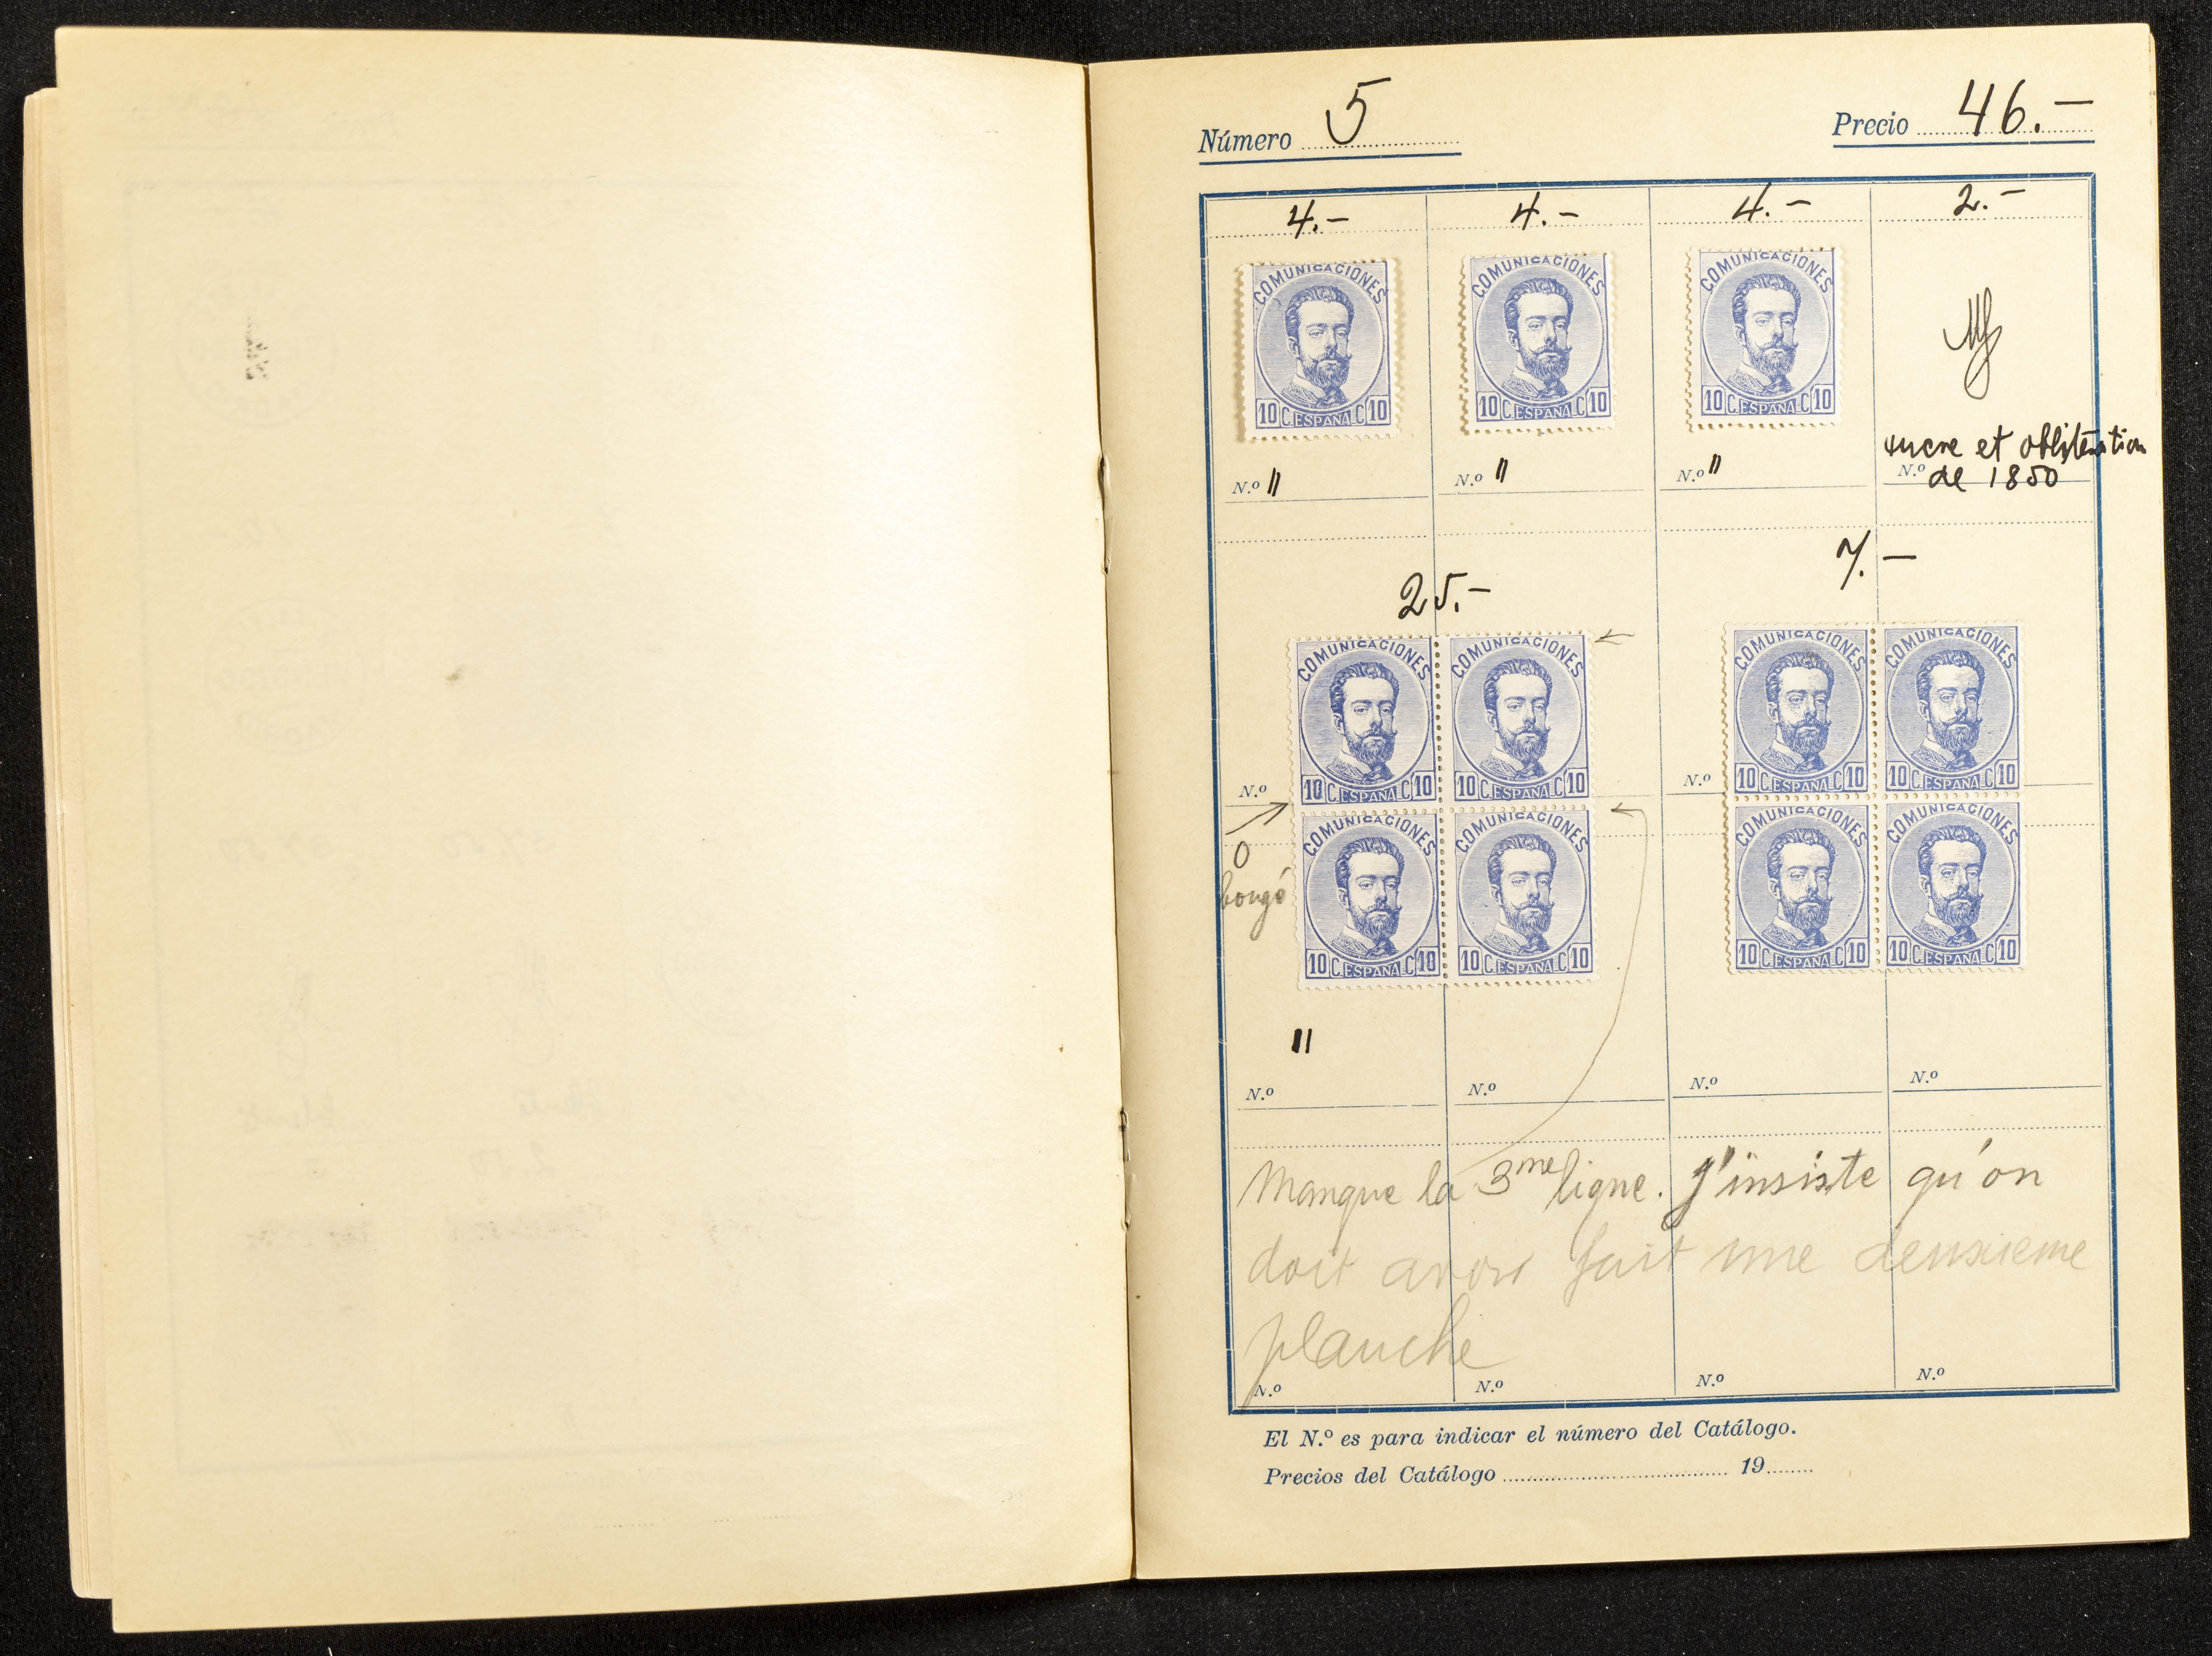 Número 5
Precio 46.-
4.- 4.- 4.- 2.-
COMUNICACIONES COMUNICACIONES COMUNICACIONES
10 C. ESPAÑA C 10 10 C. ESPAÑA C 10 10 C. ESPAÑA C 10
et oblitération
N.º 11 N.º 11 N.º 11 N.º de 1850
7.-
25.-
COMUNICACIONES COMUNICACIONES COMUNICACIONES COMUNICACIONES
10 C. ESPAÑA C 10 10 C. ESPAÑA C 10 10 C. ESPAÑA C 10 10 C. ESPAÑA C 10
N.º N.º
COMUNICACIONES COMUNICACIONES COMUNICACIONES COMUNICACIONES
0
10 C. ESPAÑA C 10 10 C. ESPAÑA C 10 10 C. ESPAÑA C 10 10 C. ESPAÑA C 10
11
N.º N.º N.º N.º
Manque la 3me ligne. J'insiste qu'on
doit avoir fait une deuxieme
planche
N.º N.º N.º N.º
El N.º es para indicar el número del Catálogo.
Precios del Catálogo 19